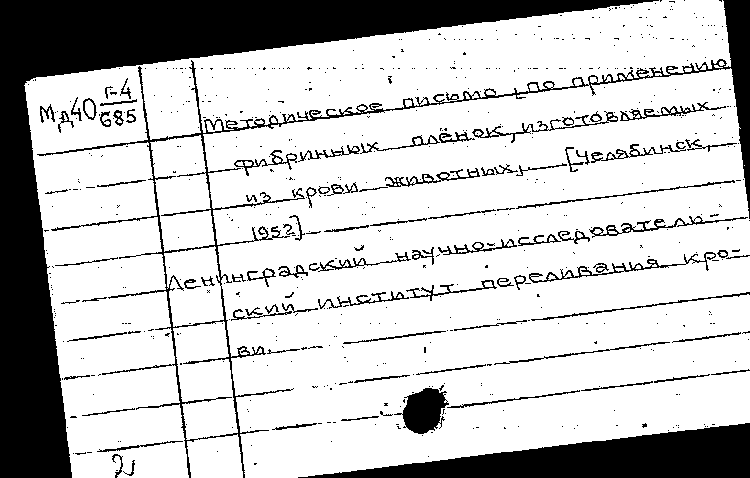 Мд40 Г-4/685
Методическое письмо по применению
фибринных плёнок, изготовляемых
из крови животных. [Челябинск,
1952]
Ленинградский научно-исследователь-
ский институт переливания кро-
ви.
2